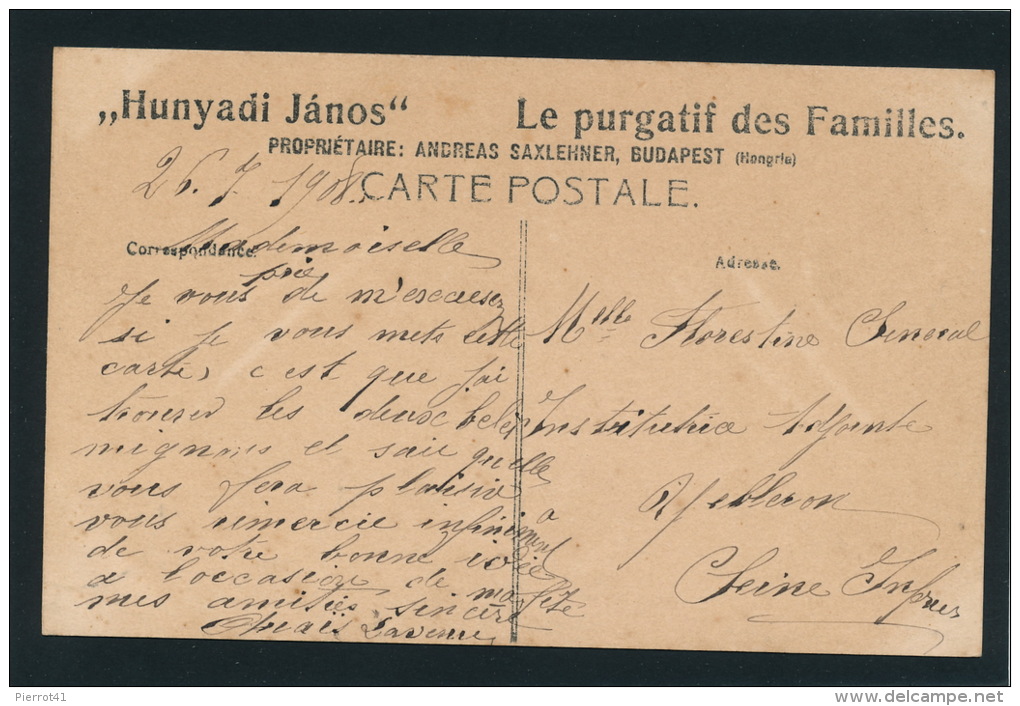 „Hunyadi János“ Le purgatif des Familles.
PROPRIÉTAIRE: ANDREAS SAXLEHNER, BUDAPEST (Hongrie)
26. 7. 1908.
CARTE POSTALE.
Correspondance.
Adresse.
Mademoiselle
prie
Je vous de m'excuser
si je vous mets cette
carte, c est que j'ai
trouver les deux
mignons et
vous fera plaisir
vous remercie infiniment
de votre bonne idée
a l'occasion de ma fête
mes amitiés sincère
Anaïs
Melle Florestine
Institutrice Adjointe
a Yebleron
Seine Infre
Pierrot41
http://www.delcampe.net